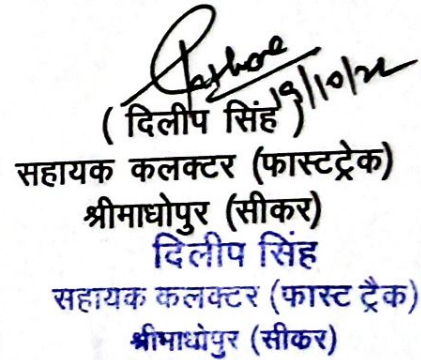 19/10/22
( दिलीप सिंह )
सहायक कलक्टर (फास्टट्रेक)
श्रीमाधोपुर (सीकर)
दिलीप सिंह
सहायक कलक्टर (फास्ट ट्रैक)
श्रीमाधोपुर (सीकर)